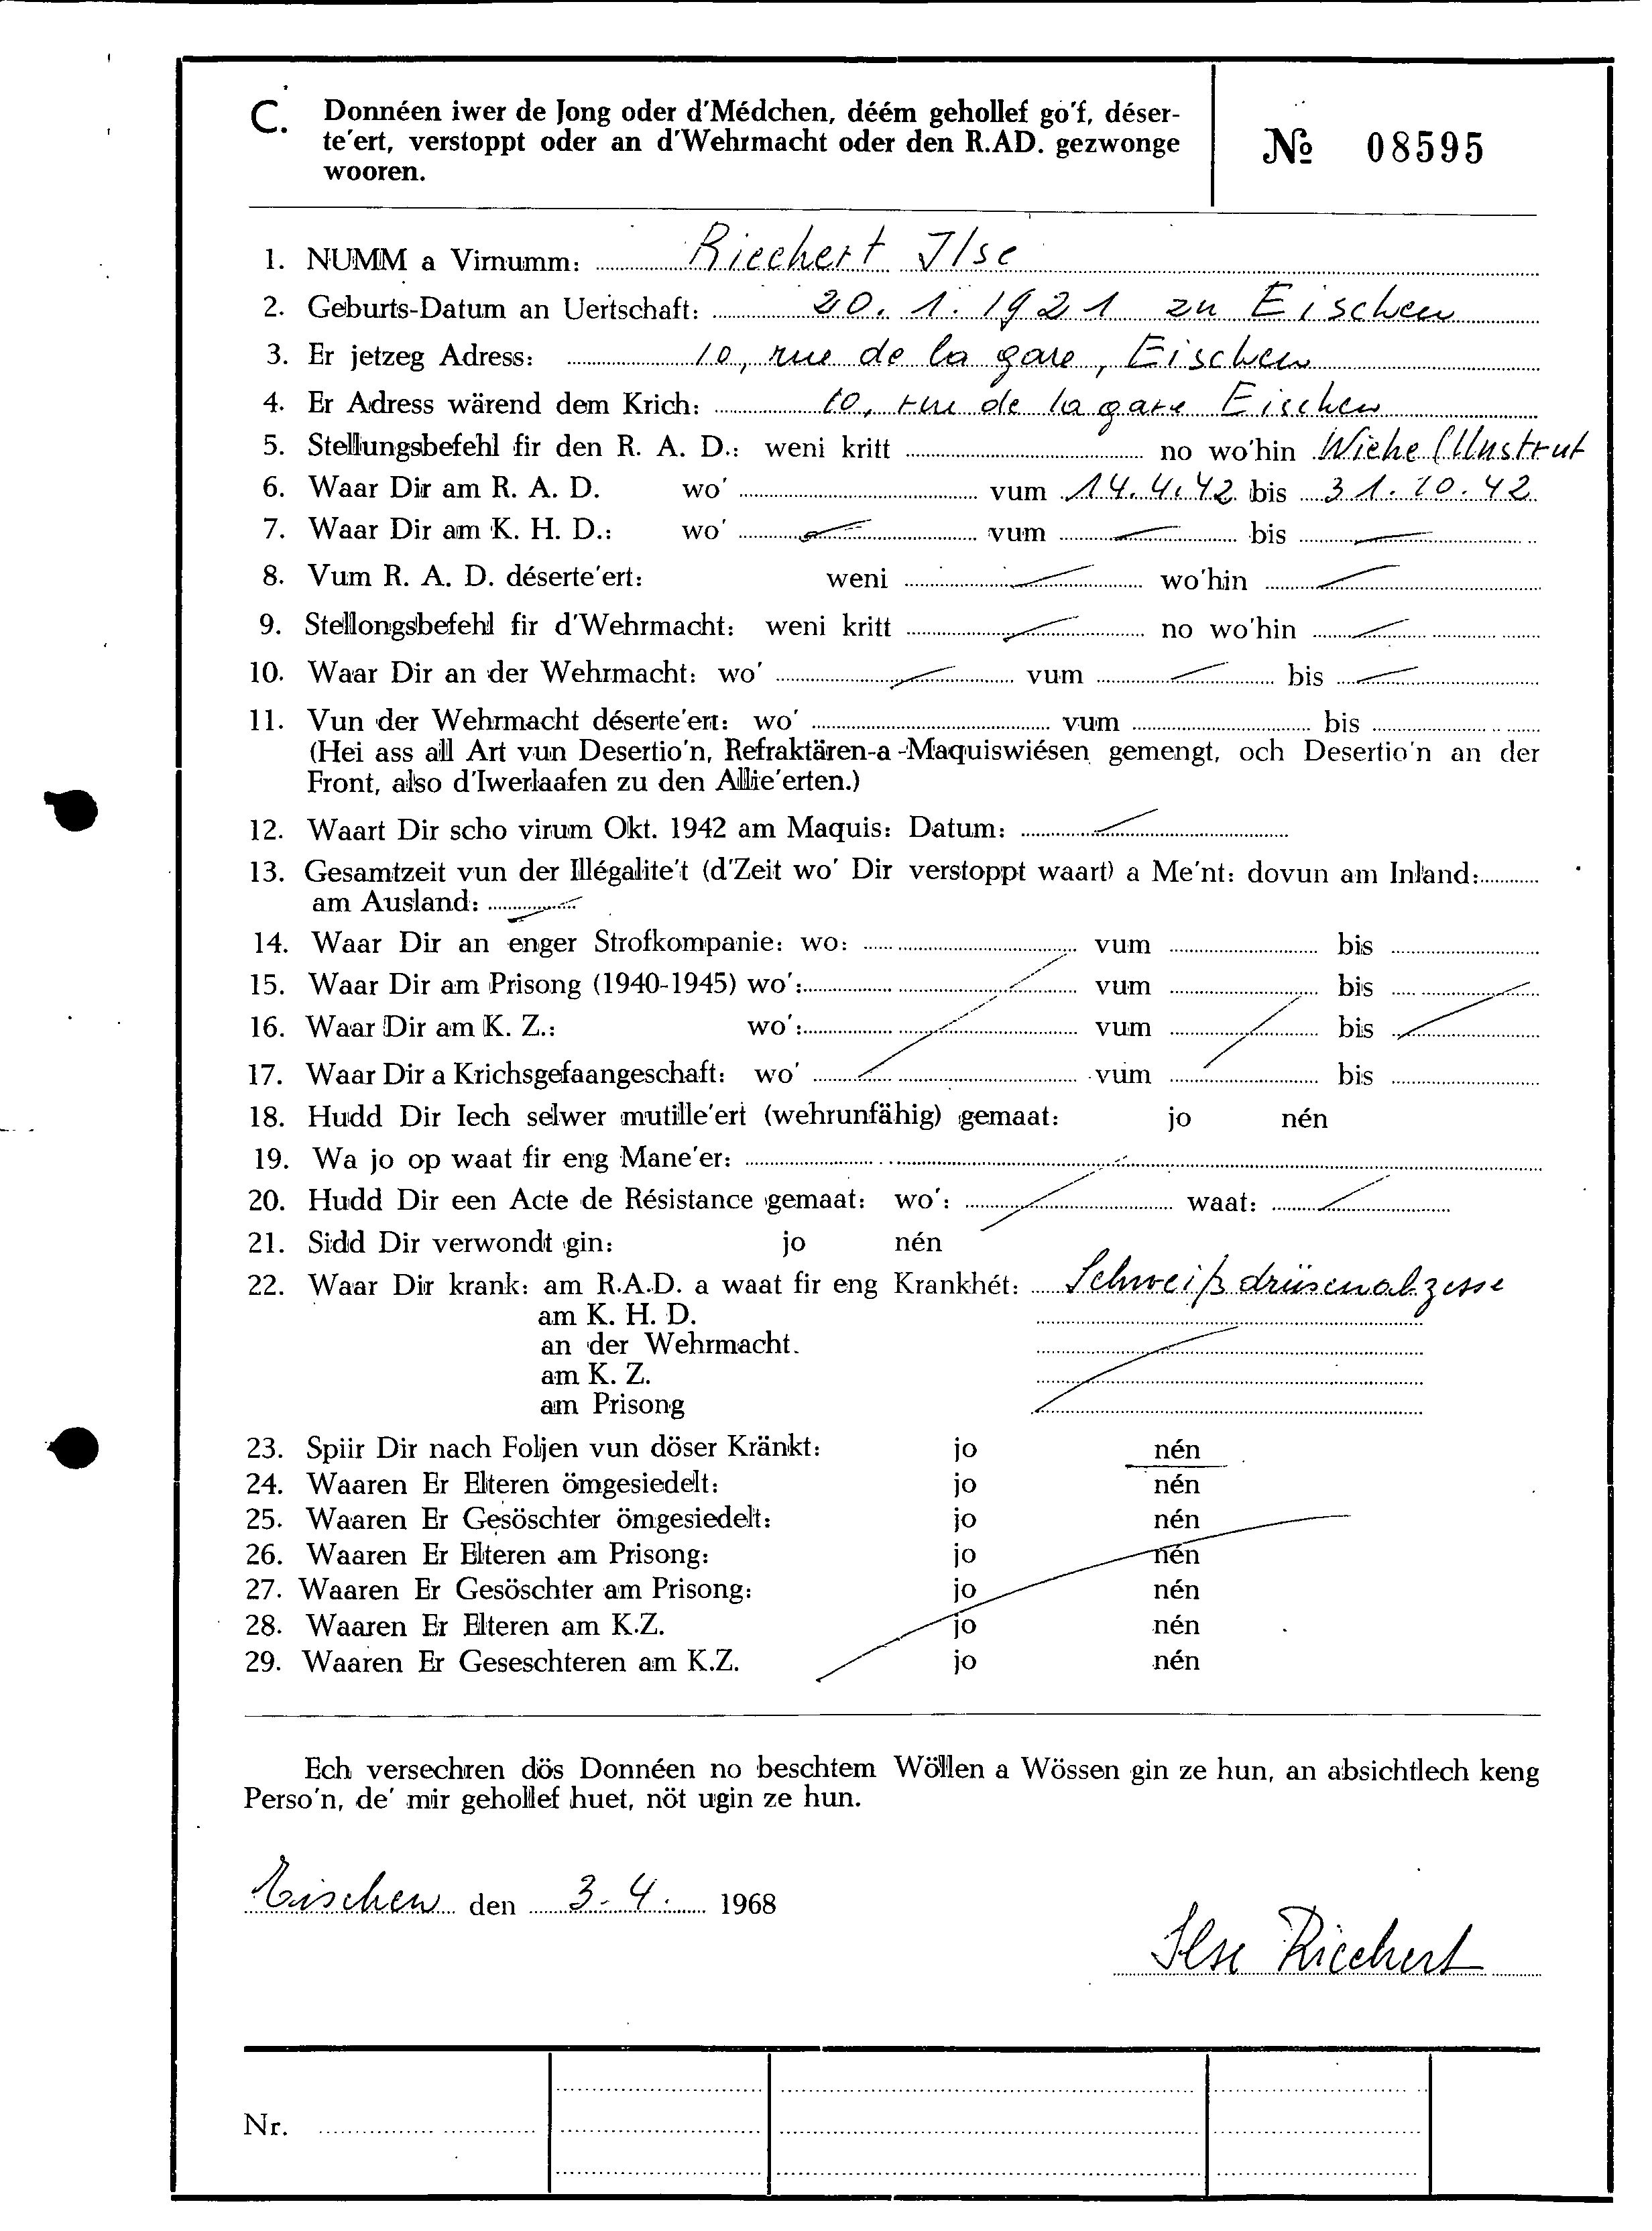 C. Donnéen iwer de Jong oder d'Médchen, déém gehollef go'f, déser-
te'ert, verstoppt oder an d'Wehrmacht oder den R.AD. gezwonge
wooren.
№ 08595
1. NUMM a Virnumm: Riechert Ilse
2. Geburts-Datum an Uertschaft: 20. 1. 1921 zu Eischen
3. Er jetzeg Adress: 10, rue de la gare, Eischen
4. Er Adress wärend dem Krich: 10, rue de la gare Eischen
5. Stellungsbefehl fir den R. A. D.: weni kritt no wo'hin Wiehe (Unstrut
6. Waar Dir am R. A. D. wo' vum 14.4.42 bis 31.10.42
7. Waar Dir am K. H. D.: wo' vum bis
8. Vum R. A. D. déserte'ert: weni wo'hin
9. Stellongsbefehl fir d'Wehrmacht: weni kritt no wo'hin
10. Waar Dir an der Wehrmacht: wo' vum bis
11. Vun der Wehrmacht déserte'ert: wo' vum bis
(Hei ass all Art vun Desertio'n, Refraktären-a-Maquiswiésen gemengt, och Desertio'n an der
Front, also d'Iwerlaafen zu den Allie'erten.)
12. Waart Dir scho virum Okt. 1942 am Maquis: Datum:
13. Gesamtzeit vun der Illégalite't (d'Zeit wo' Dir verstoppt waart) a Me'nt: dovun am Inland:
am Ausland:
14. Waar Dir an enger Strofkompanie: wo: vum bis
15. Waar Dir am Prisong (1940-1945) wo': vum bis
16. Waar Dir am K. Z.: wo': vum bis
17. Waar Dir a Krichsgefaangeschaft: wo' vum bis
18. Hudd Dir Iech selwer mutille'ert (wehrunfähig) gemaat: jo nén
19. Wa jo op waat fir eng Mane'er:
20. Hudd Dir een Acte de Résistance gemaat: wo': waat:
21. Sidd Dir verwondt gin: jo nén
22. Waar Dir krank: am R.A.D. a waat fir eng Krankhét: Schweißdrüsenabzesse
am K. H. D.
an der Wehrmacht.
am K. Z.
am Prisong
23. Spiir Dir nach Foljen vun döser Kränkt: jo nén
24. Waaren Er Elteren ömgesiedelt: jo nén
25. Waaren Er Gesöschter ömgesiedelt: jo nén
26. Waaren Er Elteren am Prisong: jo nén
27. Waaren Er Gesöschter am Prisong: jo nén
28. Waaren Er Elteren am K.Z. jo nén
29. Waaren Er Geseschteren am K.Z. jo nén
Ech versechren dös Donnéen no beschtem Wöllen a Wössen gin ze hun, an absichtlech keng
Perso'n, de' mir gehollef huet, nöt ugin ze hun.
Eischen den 3. 4. 1968
Ilse Riechert
Nr.